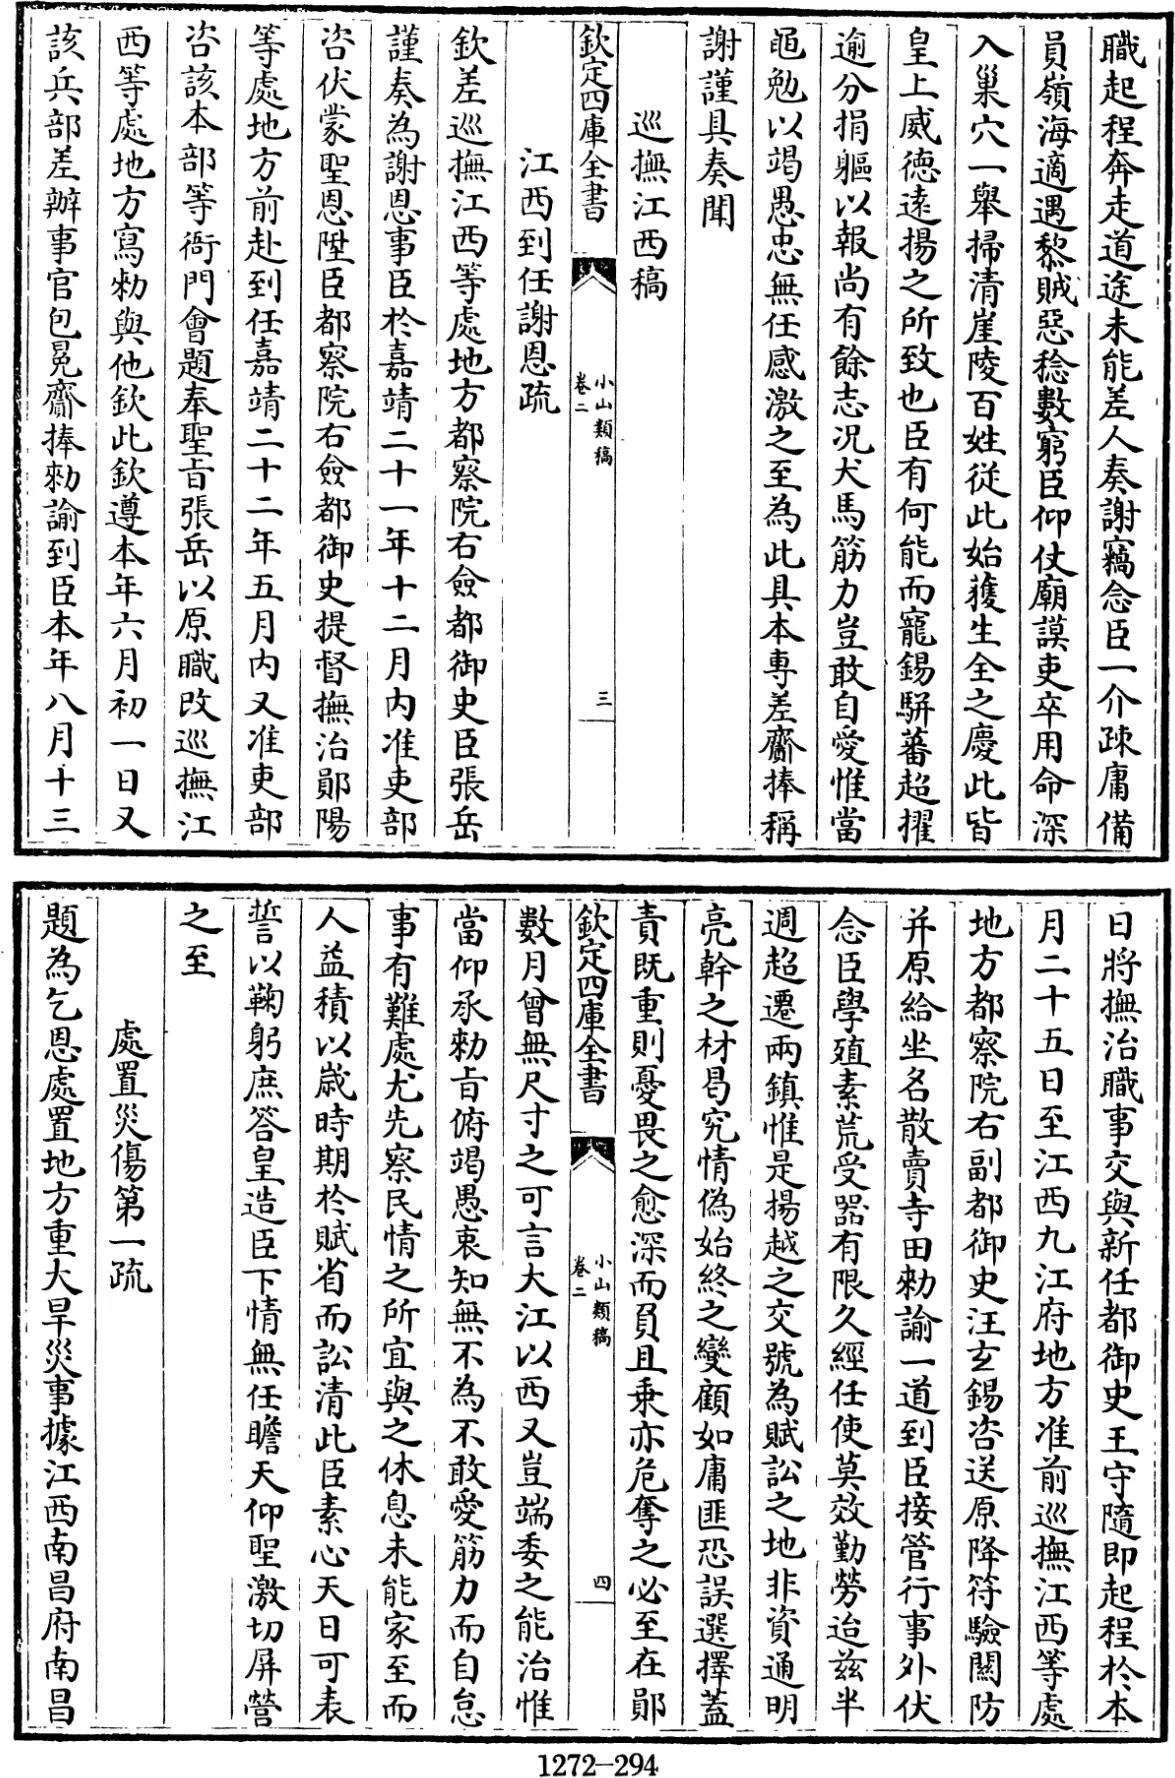 職起程奔走道途未能差人奏謝竊念臣一介踈庸備
員嶺海適遇黎賊惡稔數窮臣仰仗廟謨吏卒用命深
入巢穴一舉掃清崖陵百姓從此始獲生全之慶此皆
皇上威德遠揚之所致也臣有何能而寵錫駢蕃超擢
逾分捐軀以報尚有餘志况犬馬筋力豈敢自愛惟當
黽勉以竭愚忠無任感激之至為此具本專差齎捧稱
謝謹具奏聞
巡撫江西稿
欽定四庫全書
小山類稿
卷二
三
江西到任謝恩疏
欽差巡撫江西等處地方都察院右僉都御史臣張岳
謹奏為謝恩事臣於嘉靖二十一年十二月內准吏部
咨伏蒙聖恩陞臣都察院右僉都御史提督撫治鄖陽
等處地方前赴到任嘉靖二十二年五月内又准吏部
咨該本部等衙門會題奉聖旨張岳以原職改巡撫江
西等處地方寫勅與他欽此欽遵本年六月初一日又
該兵部差辦事官包冕齎捧勅諭到臣本年八月十三
日將撫治職事交與新任都御史王守隨即起程於本
月二十五日至江西九江府地方准前巡撫江西等處
地方都察院右副都御史汪玄錫咨送原降符驗關防
并原給坐名散賣寺田勅諭一道到臣接管行事外伏
念臣學殖素荒受器有限久經任使莫效勤勞迨兹半
週超遷兩鎮惟是揚越之交號為賦訟之地非資通明
亮幹之材曷究情偽始終之變顧如庸匪恐誤選擇蓋
責既重則憂畏之愈深而負且乗亦危奪之必至在鄖
欽定四庫全書
小山類稿
卷二
四
數月曾無尺寸之可言大江以西又豈端委之能治惟
當仰承勅旨俯竭愚衷知無不為不敢愛筋力而自怠
事有難處尤先察民情之所宜與之休息未能家至而
人益積以歲時期於賦省而訟清此臣素心天日可表
誓以鞠躬庶答皇造臣下情無任瞻天仰聖激切屏營
之至
處置災傷第一疏
題為乞恩處置地方重大旱災事據江西南昌府南昌
1272—294